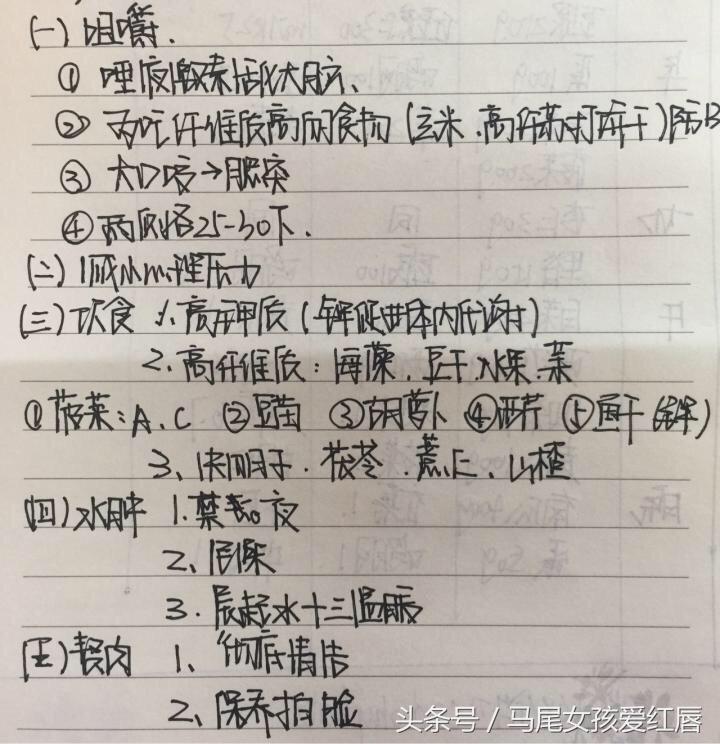 (一) 咀嚼.
① 唾液酸素活化大脑、
② 多吃纤维质高的食物 (玄米、高纤苏打饼干)防B
③ 大口咬→腮突
④ 两侧各25-30下.
(二) 减小心理压力
(三) 饮食 1、高钾质 (钾促进体内代谢)
2、高纤维质: 海藻、豆干、水果、菜
① 菠菜: A、C ② 豆苗 ③ 胡萝卜 ④ 西芹 ⑤ 鱼干 (钾)
3、决明子、茯苓、薏仁、山楂
(四) 水肿 1.禁熬夜
2、
3. 晨起水十三温暖
(五) 赘肉 1、彻底清洁
2、保养拍脸
头条号 / 马尾女孩爱红唇